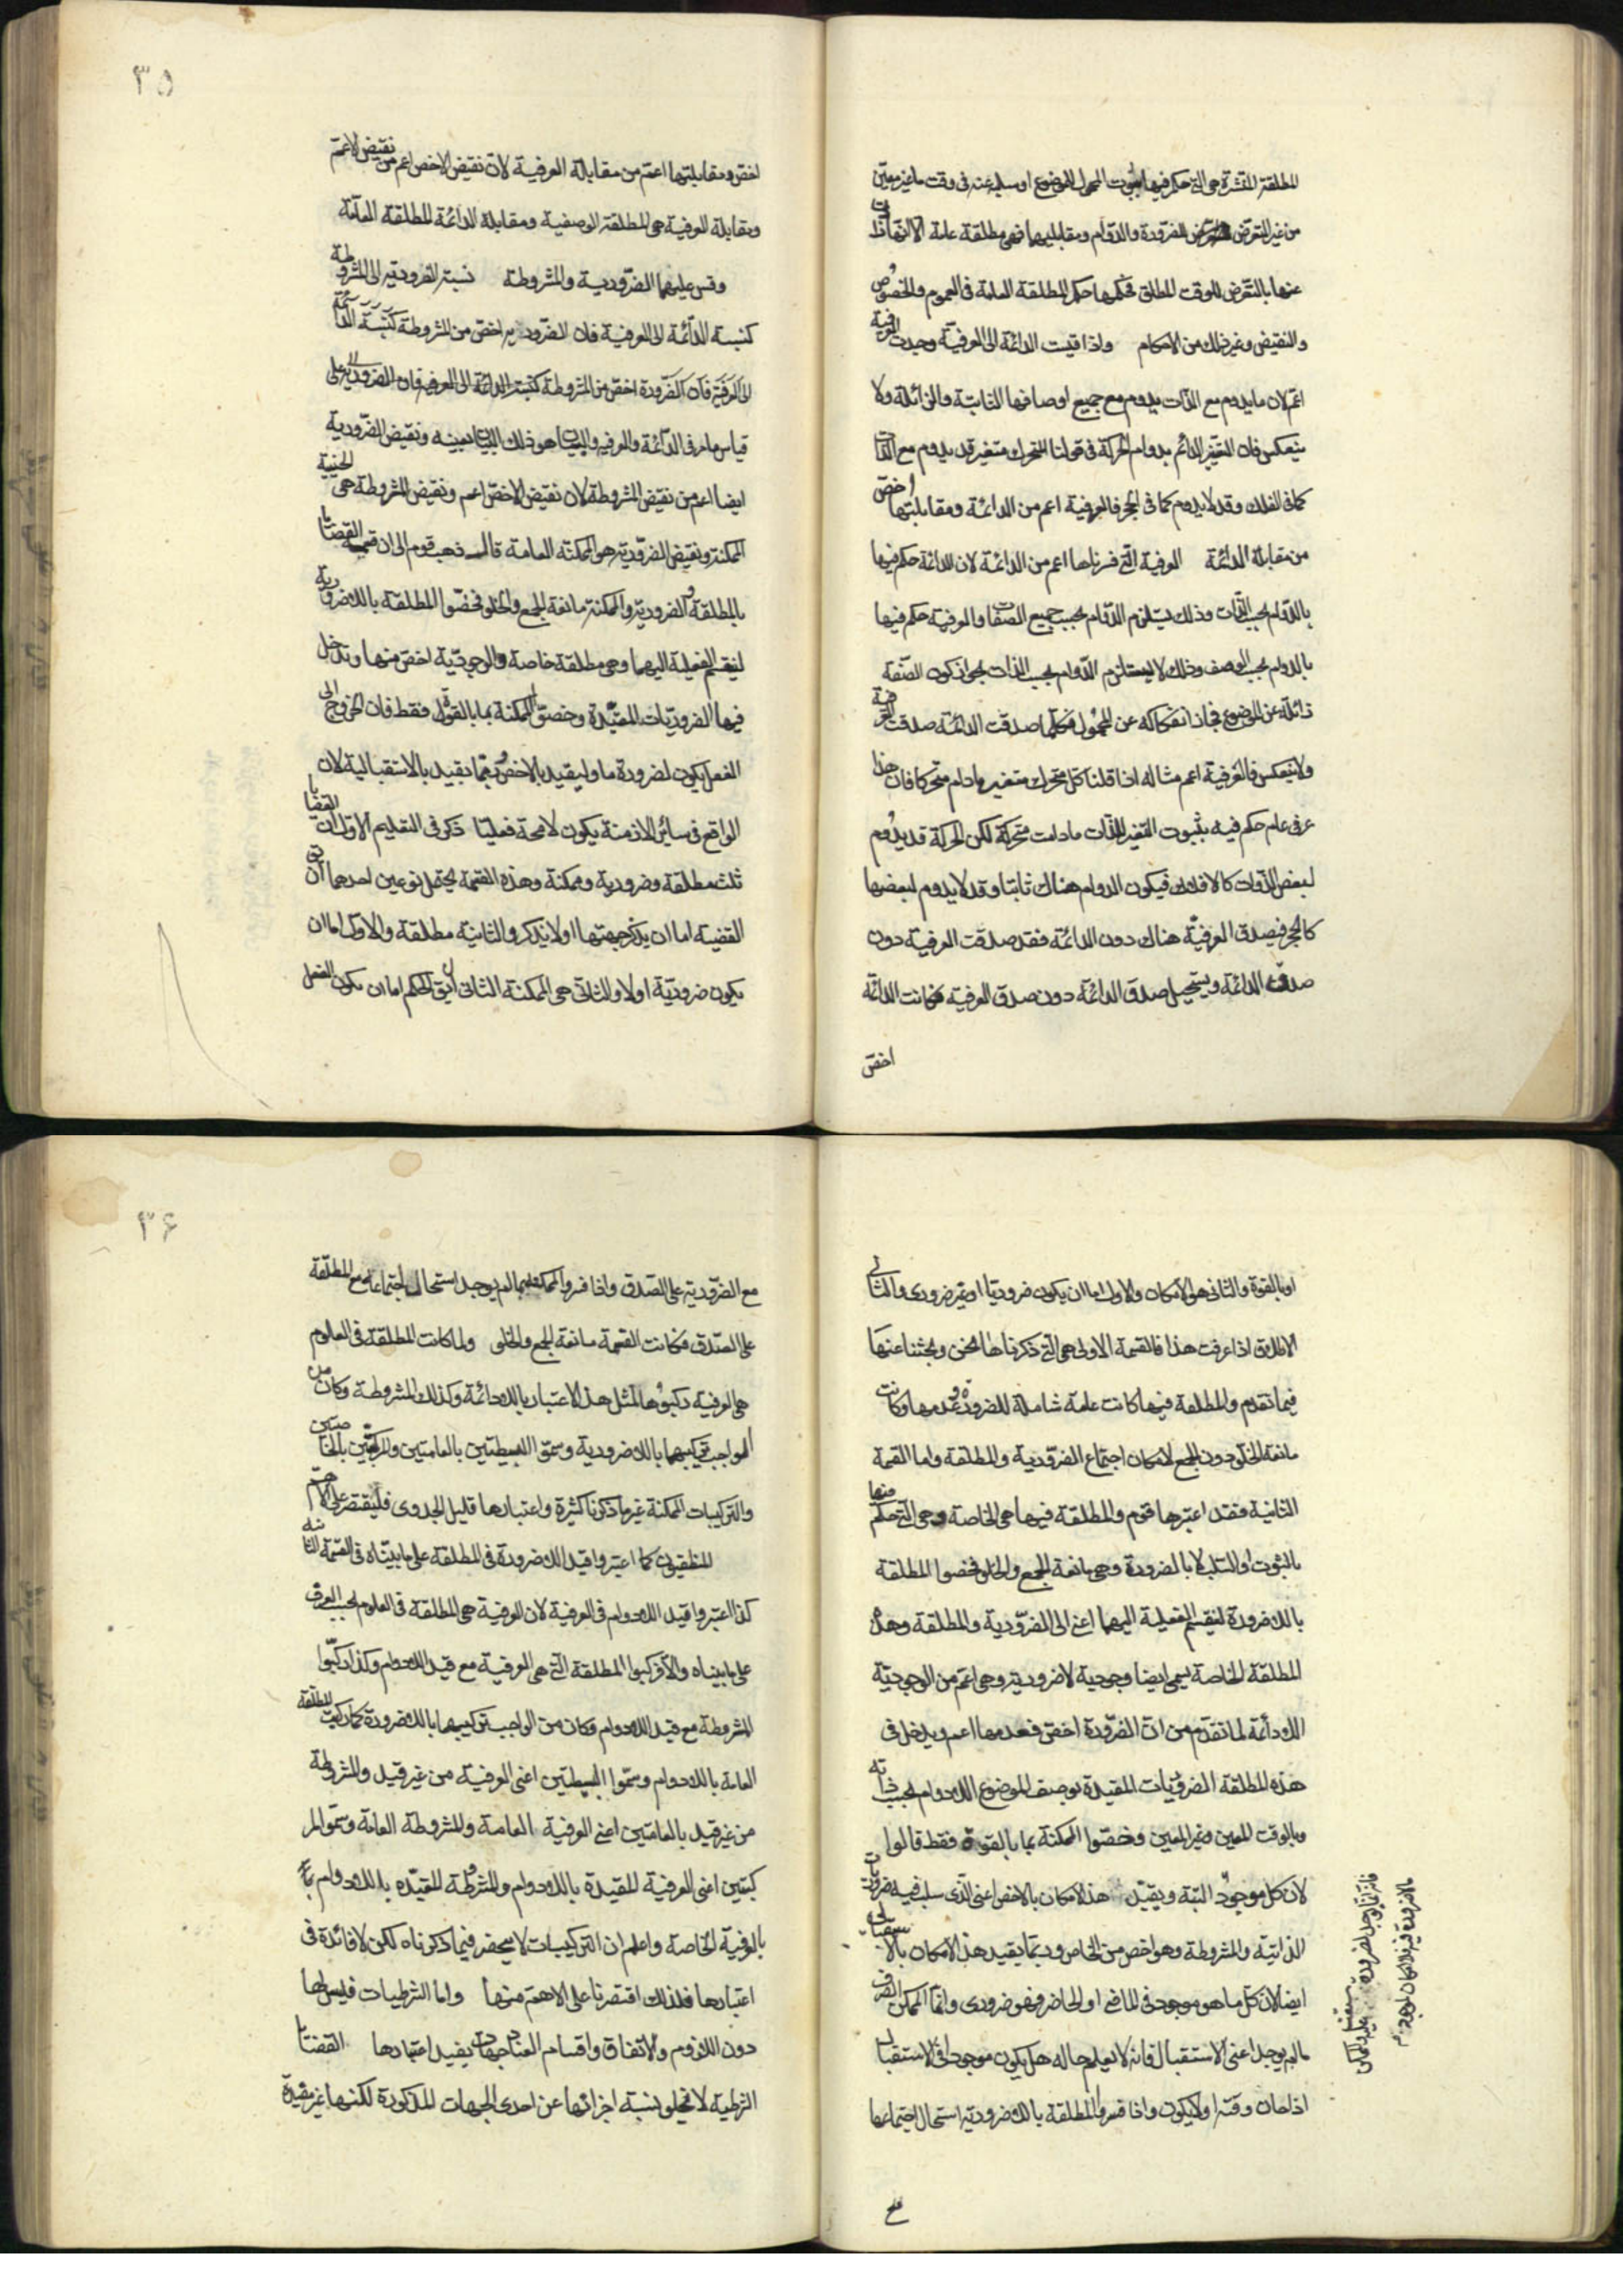 المطلقة المنتشرة هي التي حكم فيها بثبوت المحمول للموضوع او سلبه عنه في وقت ما غير معين
من غير التعرض للضرورة والدوام ومقابليهما فهي مطلقة عامة الا انها
عنها بالتعرض للوقت المطلق فحكمها حكم المطلقة العامة في العموم والخصوص
والنقيض وغير ذلك من الاحكام واذا قيست الدائمة الى العرفية وجدت العرفية
اعم لان ما يدوم مع الذات يدوم مع جميع اوصافها الثابتة والزائلة ولا
ينعكس فان التغير الدائم بدوام الحركة في قولنا المتحرك متغير قد يدوم مع الذات
كما في الفلك وقد لا يدوم كما في الحجر فالعرفية اعم من الدائمة ومقابلتها اخص
من مقابلة الدائمة العرفية التي فسرناها اعم من الدائمة لان الدائمة حكم فيها
بالدوام بحسب الذات وذلك يستلزم الدوام بحسب جميع الصفات والعرفية حكم فيها
بالدوام بحسب الوصف وذلك لا يستلزم الدوام بحسب الذات لجواز كون الصفة
زائلة عن الموضوع فجاز انفكاكه عن المحمول فكلما صدقت الدائمة صدقت العرفية
ولا ينعكس فالعرفية اعم مثاله اذا قلنا كل متحرك متغير ما دام متحركا فان هذا
عرفي عام حكم فيه بثبوت التغير للذات ما دامت متحركة لكن الحركة قد يدوم
لبعض الذوات كالافلاك فيكون الدوام هناك ثابتا وقد لا يدوم لبعضها
كالحجر فيصدق العرفية هناك دون الدائمة فقد صدقت العرفية دون
صدق الدائمة ويستحيل صدق الدائمة دون صدق العرفية فكانت الدائمة
اخص
٣٥
اخص ومقابلتها اعم من مقابلة العرفية لان نقيض الاخص اعم من نقيض الاعم
ومقابلة العرفية هي المطلقة الوصفية ومقابلة الدائمة المطلقة العامة
وقس عليهما الضرورية والمشروطة نسبة الضرورية الى المشروطة
كنسبة الدائمة الى العرفية فان الضرورية اخص من المشروطة كنسبة الدائمة
الى العرفية فان الضرورة اخص من المشروطة كنسبة الدائمة الى العرفية فان الضرورية على
قياس ما مر في الدائمة والعرفية والبيان هو ذلك البيان بعينه ونقيض الضرورية
ايضا اعم من نقيض المشروطة لان نقيض الاخص اعم ونقيض المشروطة هي الحينية
الممكنة ونقيض الضرورية هو الممكنة العامة قال ذهب قوم الى ان قسمة القضايا
بالمطلقة والضرورية والممكنة مانعة الجمع والخلو فخصوا المطلقة باللاضرورية
لينقسم الفعلية اليهما وهي مطلقة خاصة والوجودية اخص منها وتدخل
فيها الضروريات المقيدة وخصوا الممكنة بما بالقوة فقط فان الخروج الى
الفعل يكون لضرورة ما وليقيد بالاخص وربما يقيد بالاستقبالية لان
الواقع في سائر الازمنة يكون لا محة فعليا ذكر في التقسيم الاول ان القضايا
ثلث مطلقة وضرورية وممكنة وهذه القسمة يحتمل نوعين احدهما ان يق
القضية اما ان يذكر جهتها او لا يذكر والثانية مطلقة والاول اما ان
يكون ضرورية او لا والثاني هي الممكنة الثاني ان يق الحكم اما ان يكون بالفعل
او بالقوة والثاني هو الامكان والاول اما ان يكون ضروريا او غير ضروري والثاني
الاطلاق اذا عرفت هذا فالقسمة الاولى هي التي ذكرناها نحن وبحثنا عنها
فيما تقدم والمطلقة فيها كانت عامة شاملة للضرورة وعدمها وكانت
مانعة الخلو دون الجمع لامكان اجتماع الضرورية والمطلقة واما القسمة
الثانية فقد اعتبرها قوم والمطلقة فيها هي الخاصة وهي التي حكم فيها
بالثبوت او السلب لا بالضرورة وهي مانعة الجمع والخلو فخصوا المطلقة
باللاضرورة لينقسم الفعلية اليهما اعني الى الضرورية والمطلقة وهذه
المطلقة الخاصة يسمى ايضا وجودية لا ضرورية وهي اعم من الوجودية
اللادائمة لما تقدم من ان الضرورة اخص فعدمها اعم ويدخل في
هذه المطلقة الضروريات المقيدة بوصف الموضوع اللادوام بحسب ذاته
وبالوقت المعين وغير المعين وخصوا الممكنة بما بالقوة فقط قالوا
لان كل موجود البتة ويقيد هذا الامكان بالاخص اعني الذي سلب فيه ضروريات
الذاتية والمشروطة وهو اخص من الخاص وربما يقيد هذا الامكان بالاستقبالي
ايضا لان كل ما هو موجود في الماضي او الحاضر فهو ضروري وانما الممكن الصرف
ما لم يوجد اعني الاستقبال فانه لا يعلم حاله هل يكون موجودا في الاستقبال
اذا حان وقته او لا يكون واذا فسروا المطلقة باللاضرورية استحال اجتماعها
٣۶
مع الضرورية على الصدق واذا فسروا الممكنة بما لم يوجد استحال اجتماعها مع المطلقة
على الصدق فكانت القسمة مانعة الجمع والخلو ولما كانت المطلقة في العلوم
هي العرفية ركبوها لمثل هذا الاعتبار باللادائمة وكذلك المشروطة وكان من
الواجب تركيبهما باللاضرورية وسموا البسيطتين بالعامتين والمركبتين بالخاصتين
والتركيبات الممكنة غير ما ذكرنا كثيرة واعتبارها قليل الجدوى فليقتصر على الاهم
المنطقيون كما اعتبروا قيد اللاضرورة في المطلقة على ما بيناه في القسمة الثانية
كذا اعتبروا قيد اللادوام في العرفية لان العرفية هي المطلقة في العلوم بحسب العرف
على ما بيناه والا فركبوا المطلقة التي هي العرفية مع قيد اللادوام وكذا ركبوا
المشروطة مع قيد اللادوام وكان من الواجب تركيبها باللاضرورة كما ركبت المطلقة
العامة باللادوام وسموا البسيطتين اعني العرفية من غير قيد والمشروطة
من غير قيد بالعامتين اعني العرفية العامة والمشروطة العامة وسموا المر
كبتين اعني العرفية المقيدة باللادوام والمشروطة المقيده باللادوام
بالعرفية الخاصة واعلم ان التركيبات لا ينحصر فيما ذكرناه لكن لا فائدة في
اعتبارها فلذلك اقتصرنا على الاهم منها واما الشرطيات فليس لها
دون اللزوم والاتفاق واقسام العناد جهات يفيد اعتبارها القضايا
الشرطية لا تخلو نسبة اجزائها عن احدى الجهات المذكورة لكنها غير مفيدة